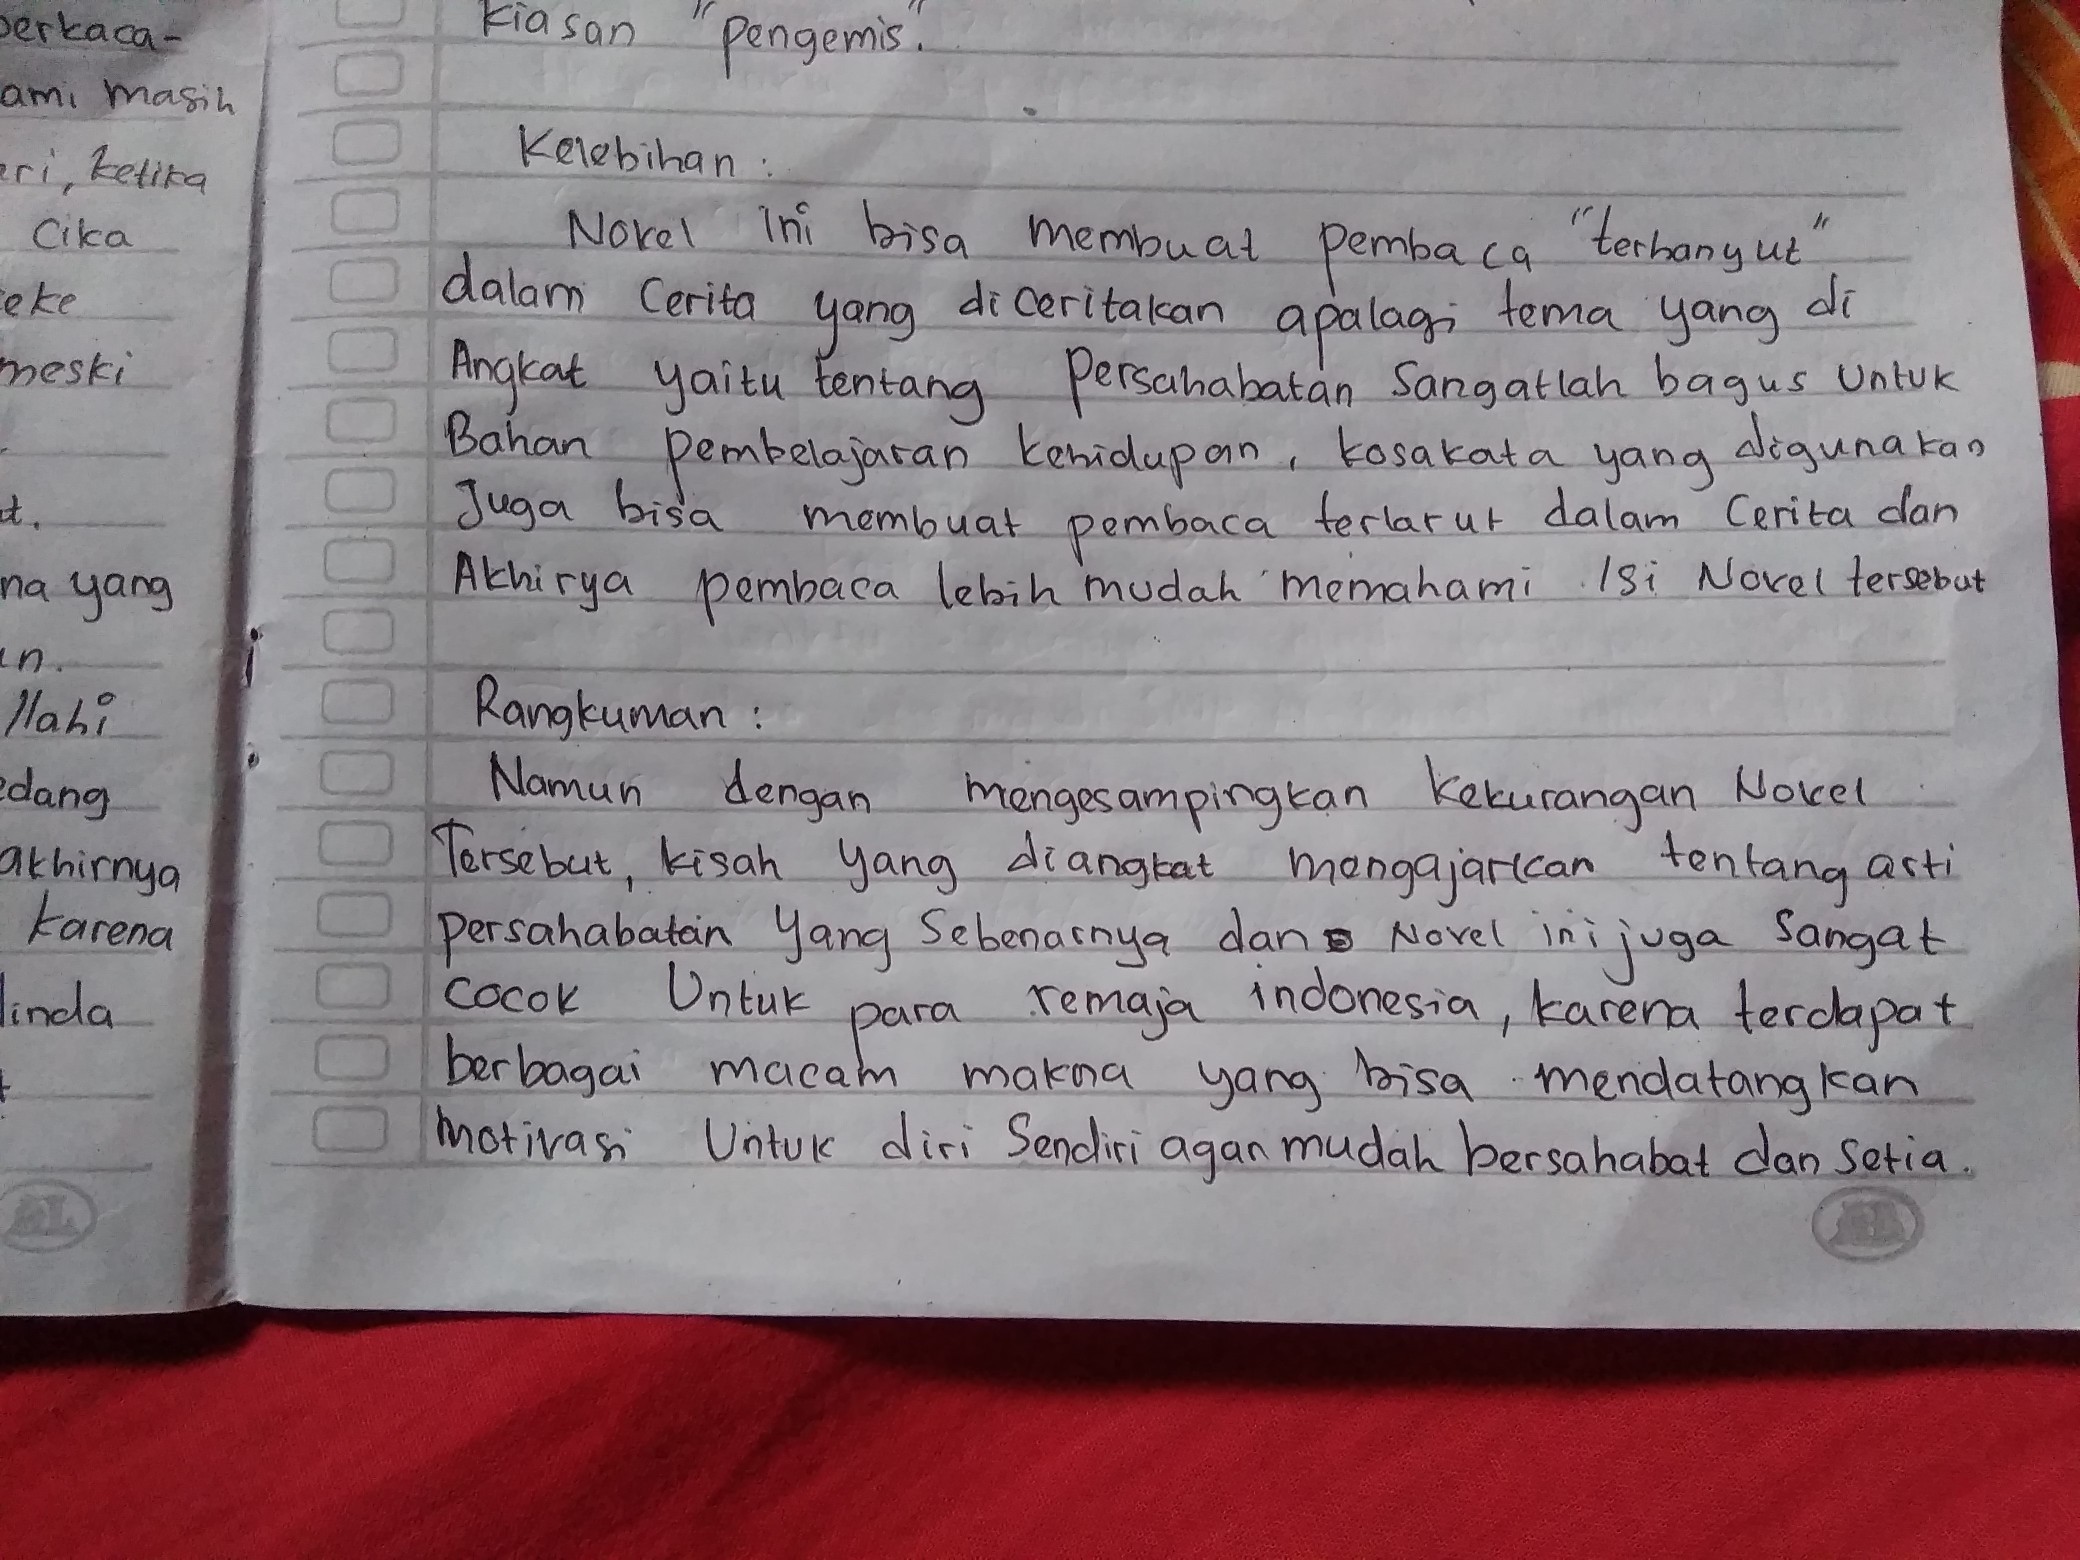 berkaca-
ami masih
eri, ketika
Cika
eke
meski
t.
na yang
in.
llahi
edang
akhirnya
karena
linda
kiasan "pengemis".
Kelebihan :
Novel ini bisa membuat pembaca "terhanyut"
dalam Cerita yang diceritakan apalagi tema yang di
Angkat yaitu tentang Persahabatan Sangatlah bagus Untuk
Bahan pembelajaran kehidupan, kosakata yang digunakan
Juga bisa membuat pembaca terlarut dalam Cerita dan
Akhirya pembaca lebih mudah memahami Isi Novel tersebut
Rangkuman :
Namun dengan mengesampingkan kekurangan Novel
Tersebut, kisah yang diangkat mengajarkan tentang arti
persahabatan Yang Sebenarnya dan Novel ini juga Sangat
cocok Untuk para remaja indonesia, karena terdapat
berbagai macam makna yang bisa mendatangkan
motivasi Untuk diri Sendiri agan mudah bersahabat dan setia.